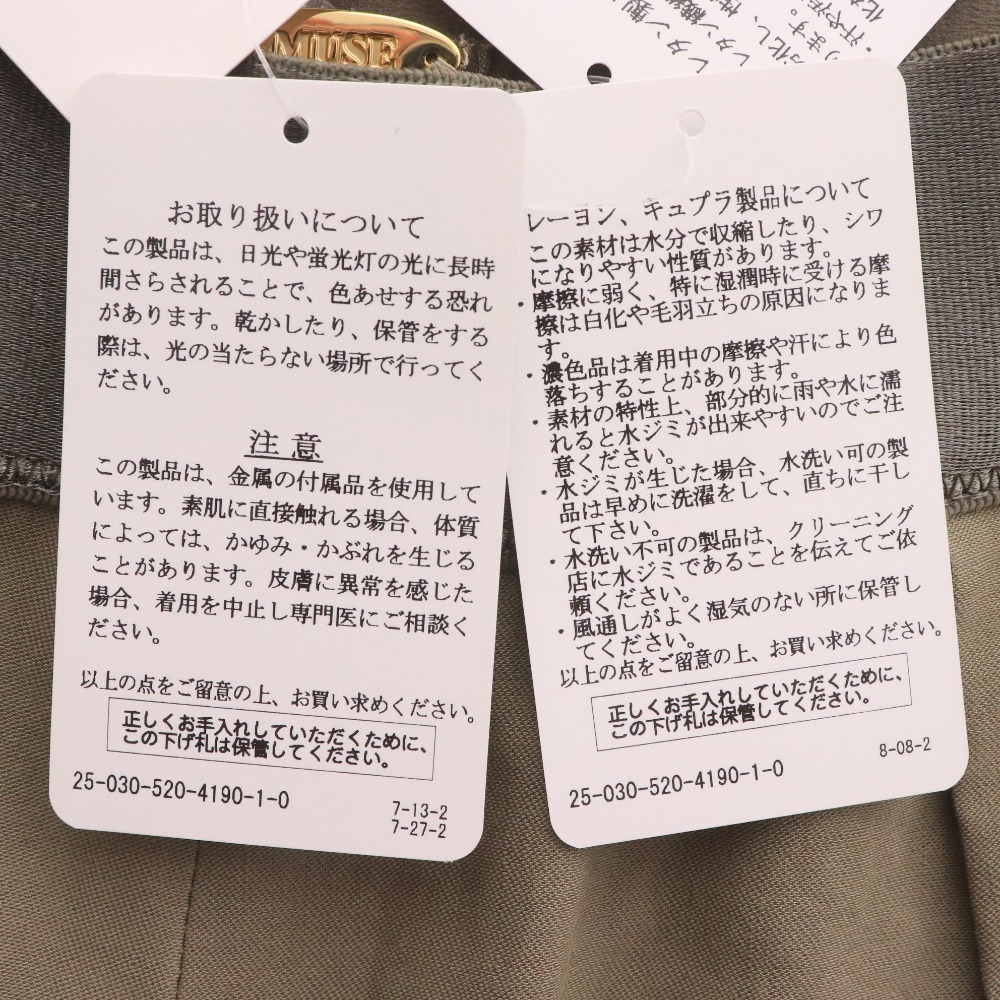 MUSE
お取り扱いについて
この製品は、日光や蛍光灯の光に長時
間さらされることで、色あせする恐れ
があります。乾かしたり、保管をする
際は、光の当たらない場所で行ってく
ださい。
注意
この製品は、金属の付属品を使用して
います。素肌に直接触れる場合、体質
によっては、かゆみ・かぶれを生じる
ことがあります。皮膚に異常を感じた
場合、着用を中止し専門医にご相談く
ださい。
以上の点をご留意の上、お買い求めください。
正しくお手入れしていただくために、
この下げ札は保管してください。
25-030-520-4190-1-0
7-13-2
7-27-2
レーヨン、キュプラ製品について
この素材は水分で収縮したり、シワ
になりやすい性質があります。
・摩擦に弱く、特に湿潤時に受ける摩
擦は白化や毛羽立ちの原因になりま
す。
・濃色品は着用中の摩擦や汗により色
落ちすることがあります。
・素材の特性上、部分的に雨や水に濡
れると水ジミが出来やすいのでご注
意ください。
・水ジミが生じた場合、水洗い可の製
品は早めに洗濯をして、直ちに干し
て下さい。
・水洗い不可の製品は、クリーニング
店に水ジミであることを伝えてご依
頼ください。
・風通しがよく湿気のない所に保管し
てください。
以上の点をご留意の上、お買い求めください。
正しくお手入れしていただくために、
この下げ札は保管してください。
8-08-2
25-030-520-4190-1-0